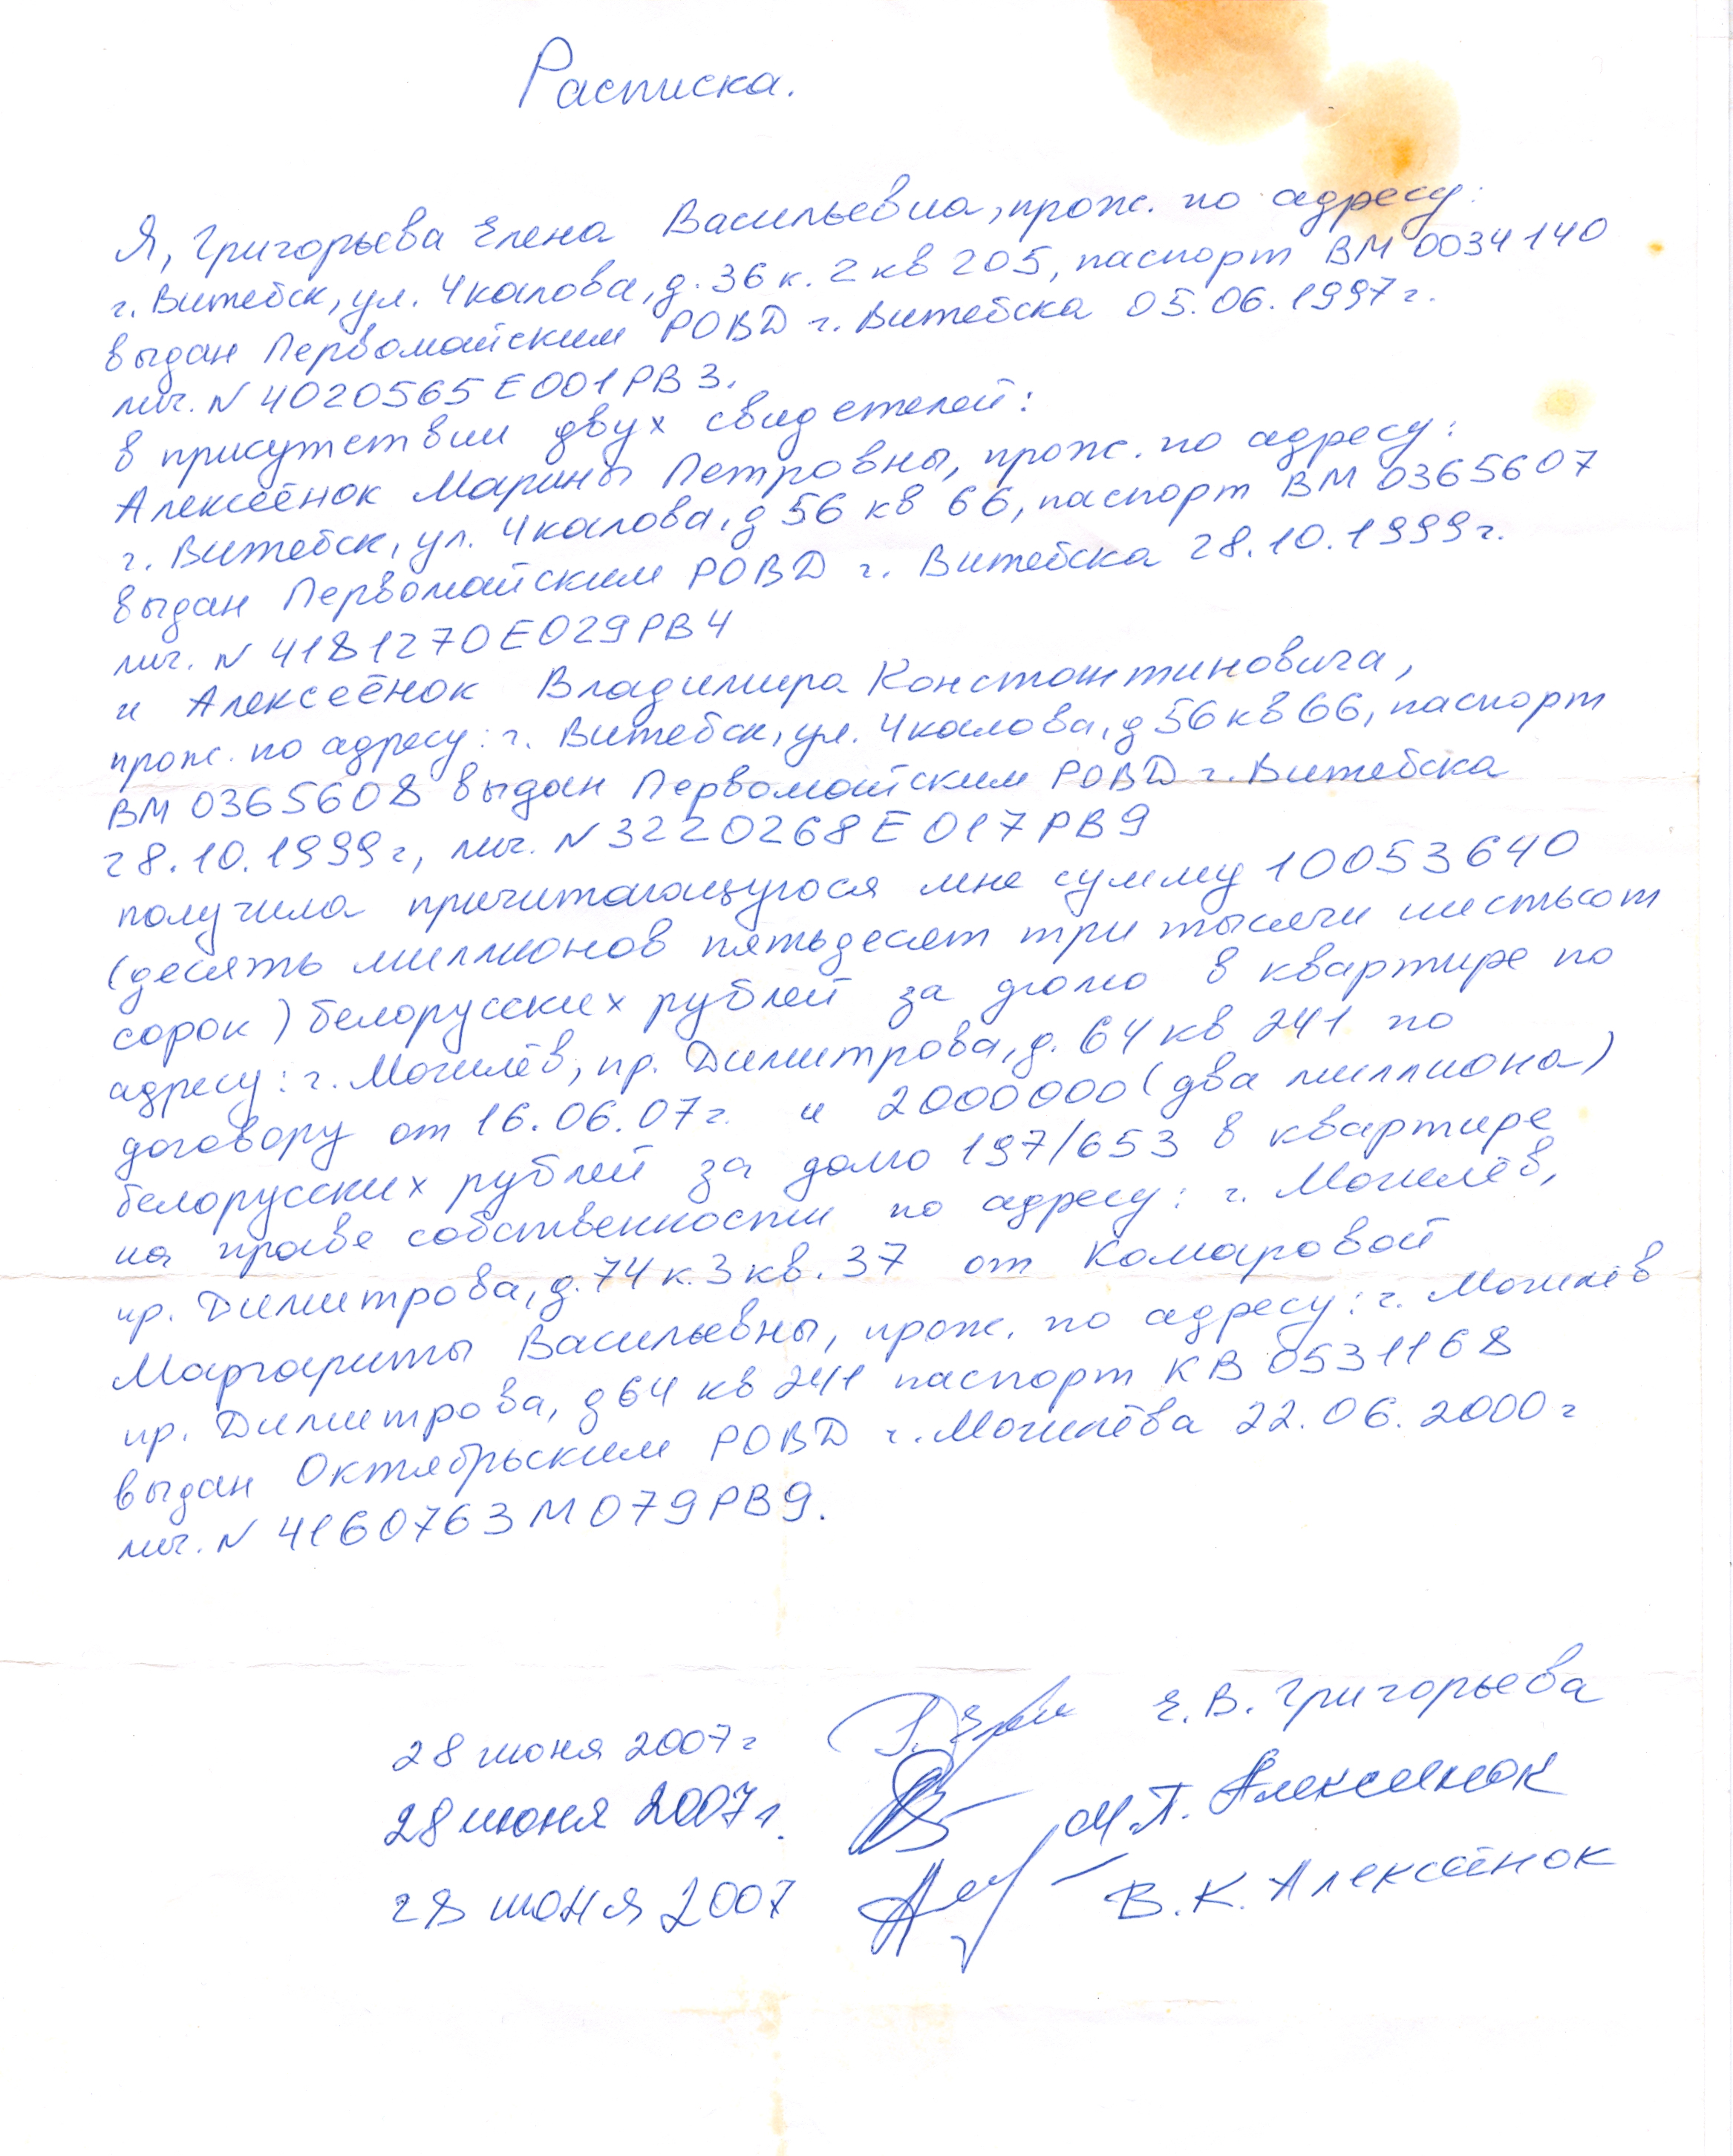 Расписка.
Я, Григорьева Елена Васильевна, прож. по адресу:
г. Витебск, ул. Чкалова, д. 36 к. 2 кв 205, паспорт ВМ 0034140
выдан Первомайским РОВД г. Витебска 05.06.1997г.
лич. N 4020565Е001РВ3.
в присутствии двух свидетелей:
Алексеёнок Марины Петровны, прож. по адресу:
г. Витебск, ул. Чкалова, д 56 кв 66, паспорт ВМ 0365607
выдан Первомайским РОВД г. Витебска 28.10.1999г.
лич. N 4181270Е029РВ4
и Алексеёнок Владимира Константиновича,
прож. по адресу: г. Витебск, ул. Чкалова, д 56 кв 66, паспорт
ВМ 0365608 выдан Первомайским РОВД г. Витебска
28.10.1999г, лич. N 3220268Е017РВ9
получила причитающуюся мне сумму 10053640
(десять миллионов пятьдесят три тысячи шестьсот
сорок) белорусских рублей за долю в квартире по
адресу: г. Могилёв, пр. Димитрова, д. 64 кв 241 по
договору от 16.06.07г. и 2000000 (два миллиона)
белорусских рублей за долю 197/653 в квартире
на праве собственности по адресу: г. Могилёв,
пр. Димитрова, д. 74 к. 3 кв. 37 от Комаровой
Маргариты Васильевны, прож. по адресу: г. Могилёв
пр. Димитрова, д 64 кв 241 паспорт КВ 0531168
выдан Октябрьским РОВД г. Могилёва 22.06.2000г
лич. N 4160763М079РВ9.
28 июня 2007г Е.В. Григорьева
28 июня 2007г. М.П. Алексеенок
28 июня 2007 В.К. Алексеёнок